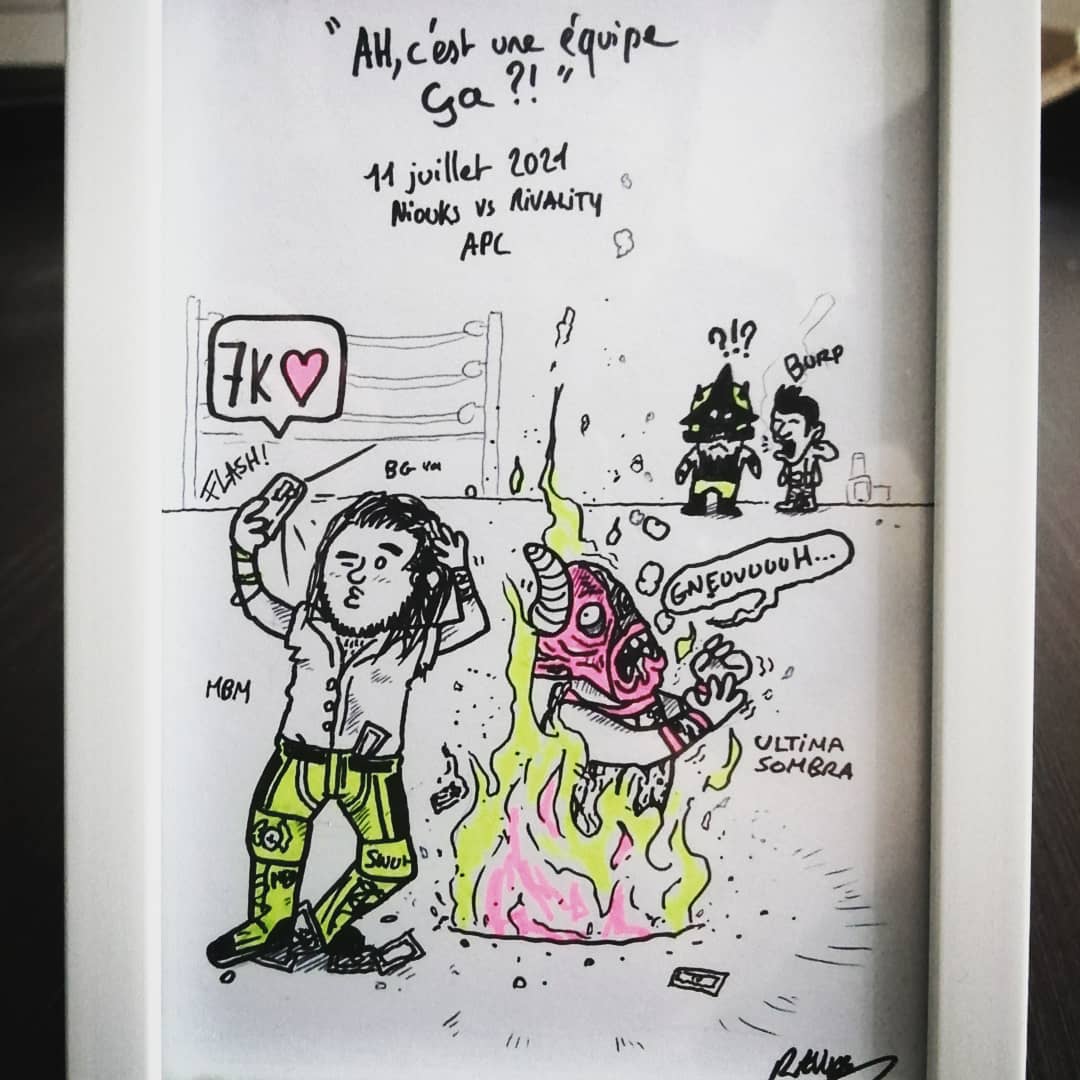 "AH, c'est une équipe
ça ?!"
11 juillet 2021
Niouks vs RiVALiTY
APC
7K
?!?
BURP
FLASH!
GNEUUUUUH...
MBM
ULTiMA
SOMBRA